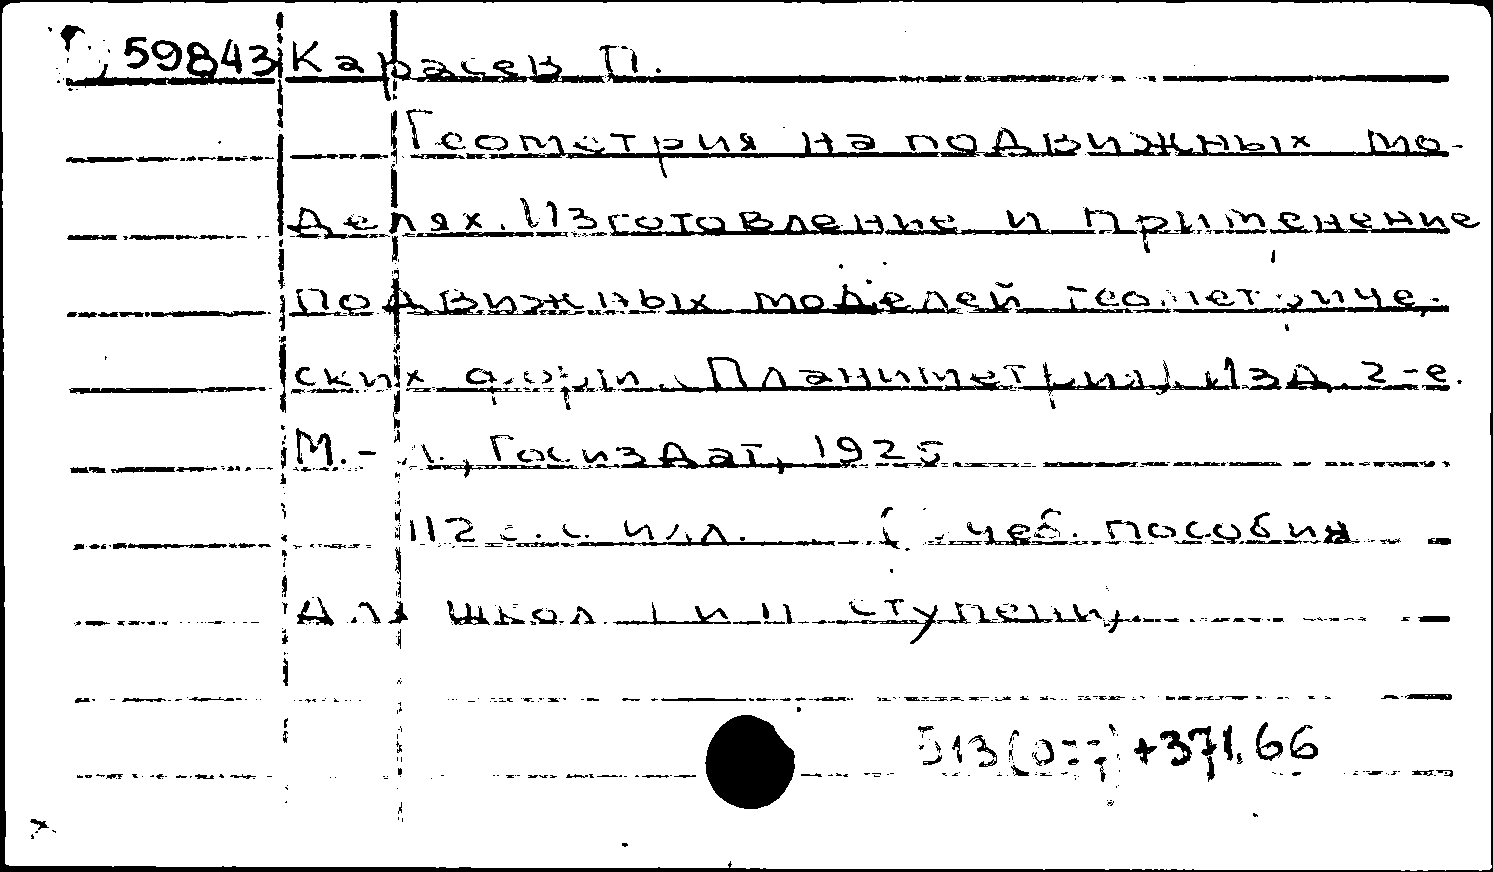 59843 Карасев П.
Геометрия на подвижных мо-
делях. Изготовление и применение
подвижных моделей геометриче-
ских форм. (Планиметрия). Изд. 2-е.
М.-Л., Госиздат, 1925
112 с. с илл. (Учеб. пособия
для школ I и II ступени)
+371.66